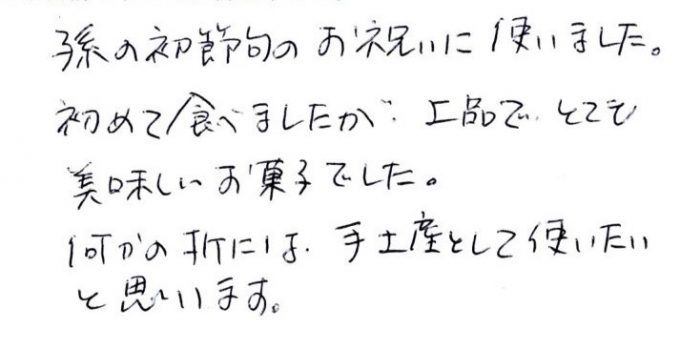 孫の初節句のお祝いに使いました。
初めて食べましたが、上品で、とても
美味しいお菓子でした。
何かの折には、手土産として使いたい
と思います。